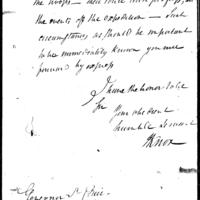 the troops — their route their progress, and
the events of the expedition — Such
circumstances as should be important
to be immediately known you will
forward by express
I have the honor to be
Sir
Your obedient
humble Servant
HKnox
Governor St Clair